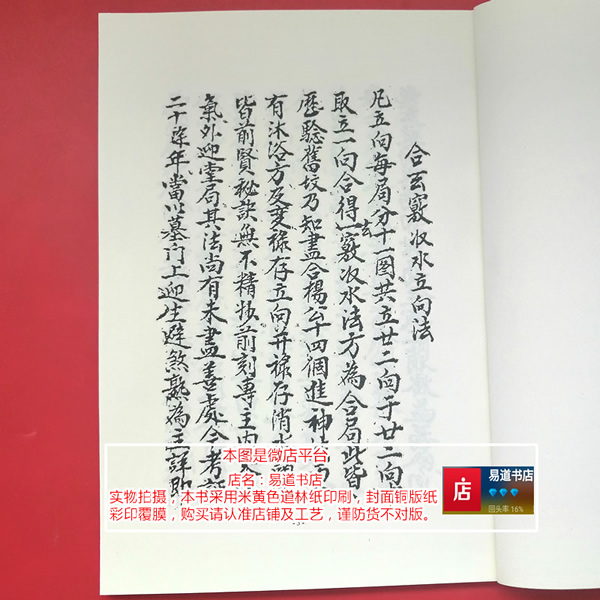 合玄竅收水立向法
凡立向每局分十一图共立廿二向于廿二向
取立一向合得一竅收水法方為合局此皆
法
歷驗舊坟乃知盡合楊公十四個進神
有沐浴方及变祿存立向并祿存消水
皆前賢秘訣無不精妙前刻專主內
氣外迎堂局其法尚有未盡善處今考
二十柒年當以墓门上迎生避煞為主詳
本图是微店平台
店名：易道书店
实物拍摄：本书采用米黄色道林纸印刷，封面铜版纸
彩印覆膜，购买请认准店铺及工艺，谨防货不对版。
店
易道书店
回头率 16%
-3-